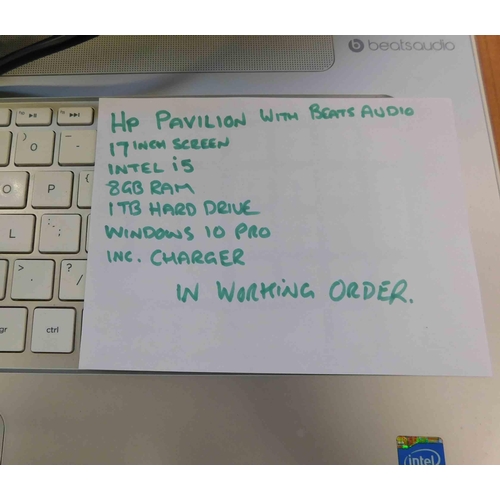 beatsaudio
HP PAVILION WITH BEATS AUDIO
17 INCH SCREEN
INTEL i5
8GB RAM
1TB HARD DRIVE
WINDOWS 10 PRO
INC. CHARGER
IN WORKING ORDER.
O
-
O P
L : ;
> . ? /
gr ctrl
intel